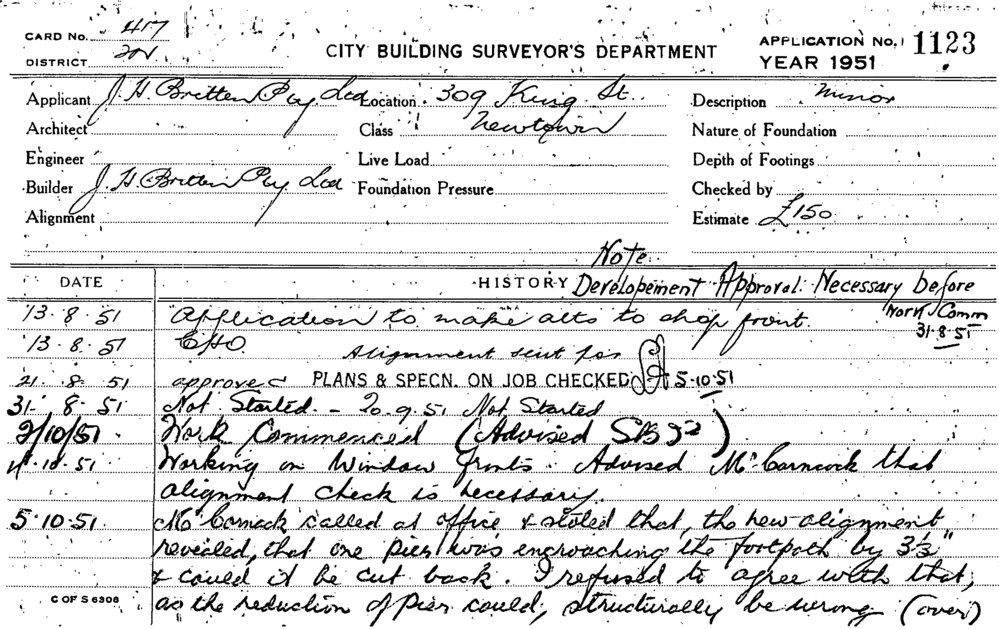 CARD No. 417
DISTRICT
CITY BUILDING SURVEYOR'S DEPARTMENT
APPLICATION No. 1123
YEAR 1951
Applicant J. H. Britten Pty Ltd Location 309 King St. Description Minor
Architect Class Newtown Nature of Foundation
Engineer Live Load Depth of Footings
Builder J. H. Britten Pty Ltd Foundation Pressure Checked by
Alignment Estimate £150
Note
DATE HISTORY Developement Approval Necessary before
Work Comm
31.8.51
13.8.51 Application to make alts to shop front.
13.8.51 CHO. Alignment sent for
21.8.51 approved PLANS & SPECN. ON JOB CHECKED 5.10.51
31.8.51 Not Started. - 20.9.51 Not Started
2/10/51. Work Commenced (Advised SB 92)
4.10.51 Working on Window fronts. Advised Mr Carmack that
alignment check is necessary.
5.10.51. Mr Cormack called at office & stated that, the new alignment
revealed, that one pier was engroaching the footpath by 3½"
& could it be cut back. I refused to agree with that,
C OF S 6306 as the reduction of pier could, structurally be wrong (over)